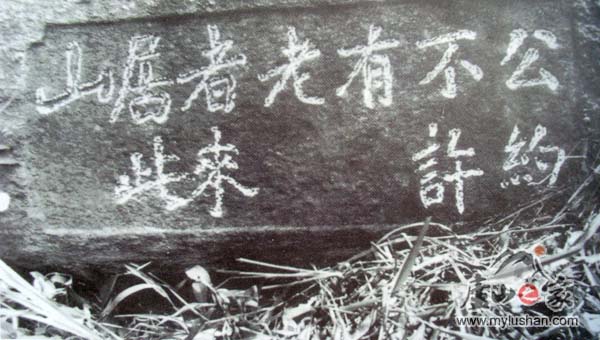 公約
不許
有
老
者來
此
山
庐山之家
www.mylushan.com